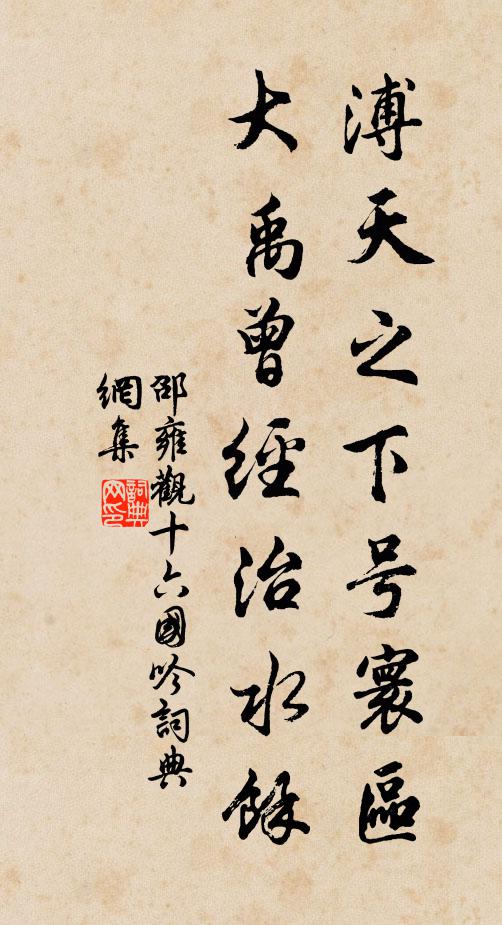 溥天之下号寰區
大禹曾經治水餘
邵雍觀十六國吟詞典
網集
詞典
网印